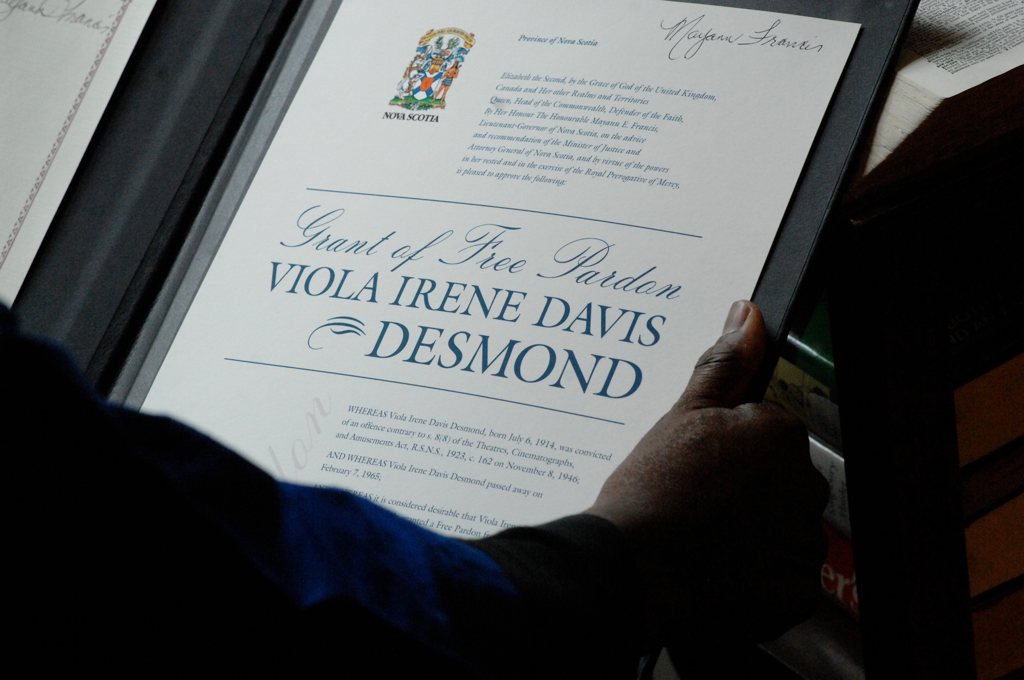 Mayann Francis
Province of Nova Scotia
NOVA SCOTIA
Elizabeth the Second, by the Grace of God of the United Kingdom,
Canada and Her other Realms and Territories
Queen, Head of the Commonwealth, Defender of the Faith,
By Her Honour The Honourable Mayann E. Francis,
Lieutenant-Governor of Nova Scotia, on the advice
and recommendation of the Minister of Justice and
Attorney General of Nova Scotia, and by virtue of the powers
in her vested and in the exercise of the Royal Prerogative of Mercy,
is pleased to approve the following:
Grant of Free Pardon
VIOLA IRENE DAVIS
DESMOND
WHEREAS Viola Irene Davis Desmond, born July 6, 1914, was convicted
of an offence contrary to s. 8(8) of the Theatres, Cinematographs,
and Amusements Act, R.S.N.S., 1923, c. 162 on November 8, 1946;
AND WHEREAS Viola Irene Davis Desmond passed away on
February 7, 1965;
it is considered desirable that Viola Irene
a Free Pardon